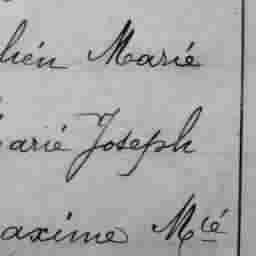 hién Marié
arié Joseph
axime M^cé